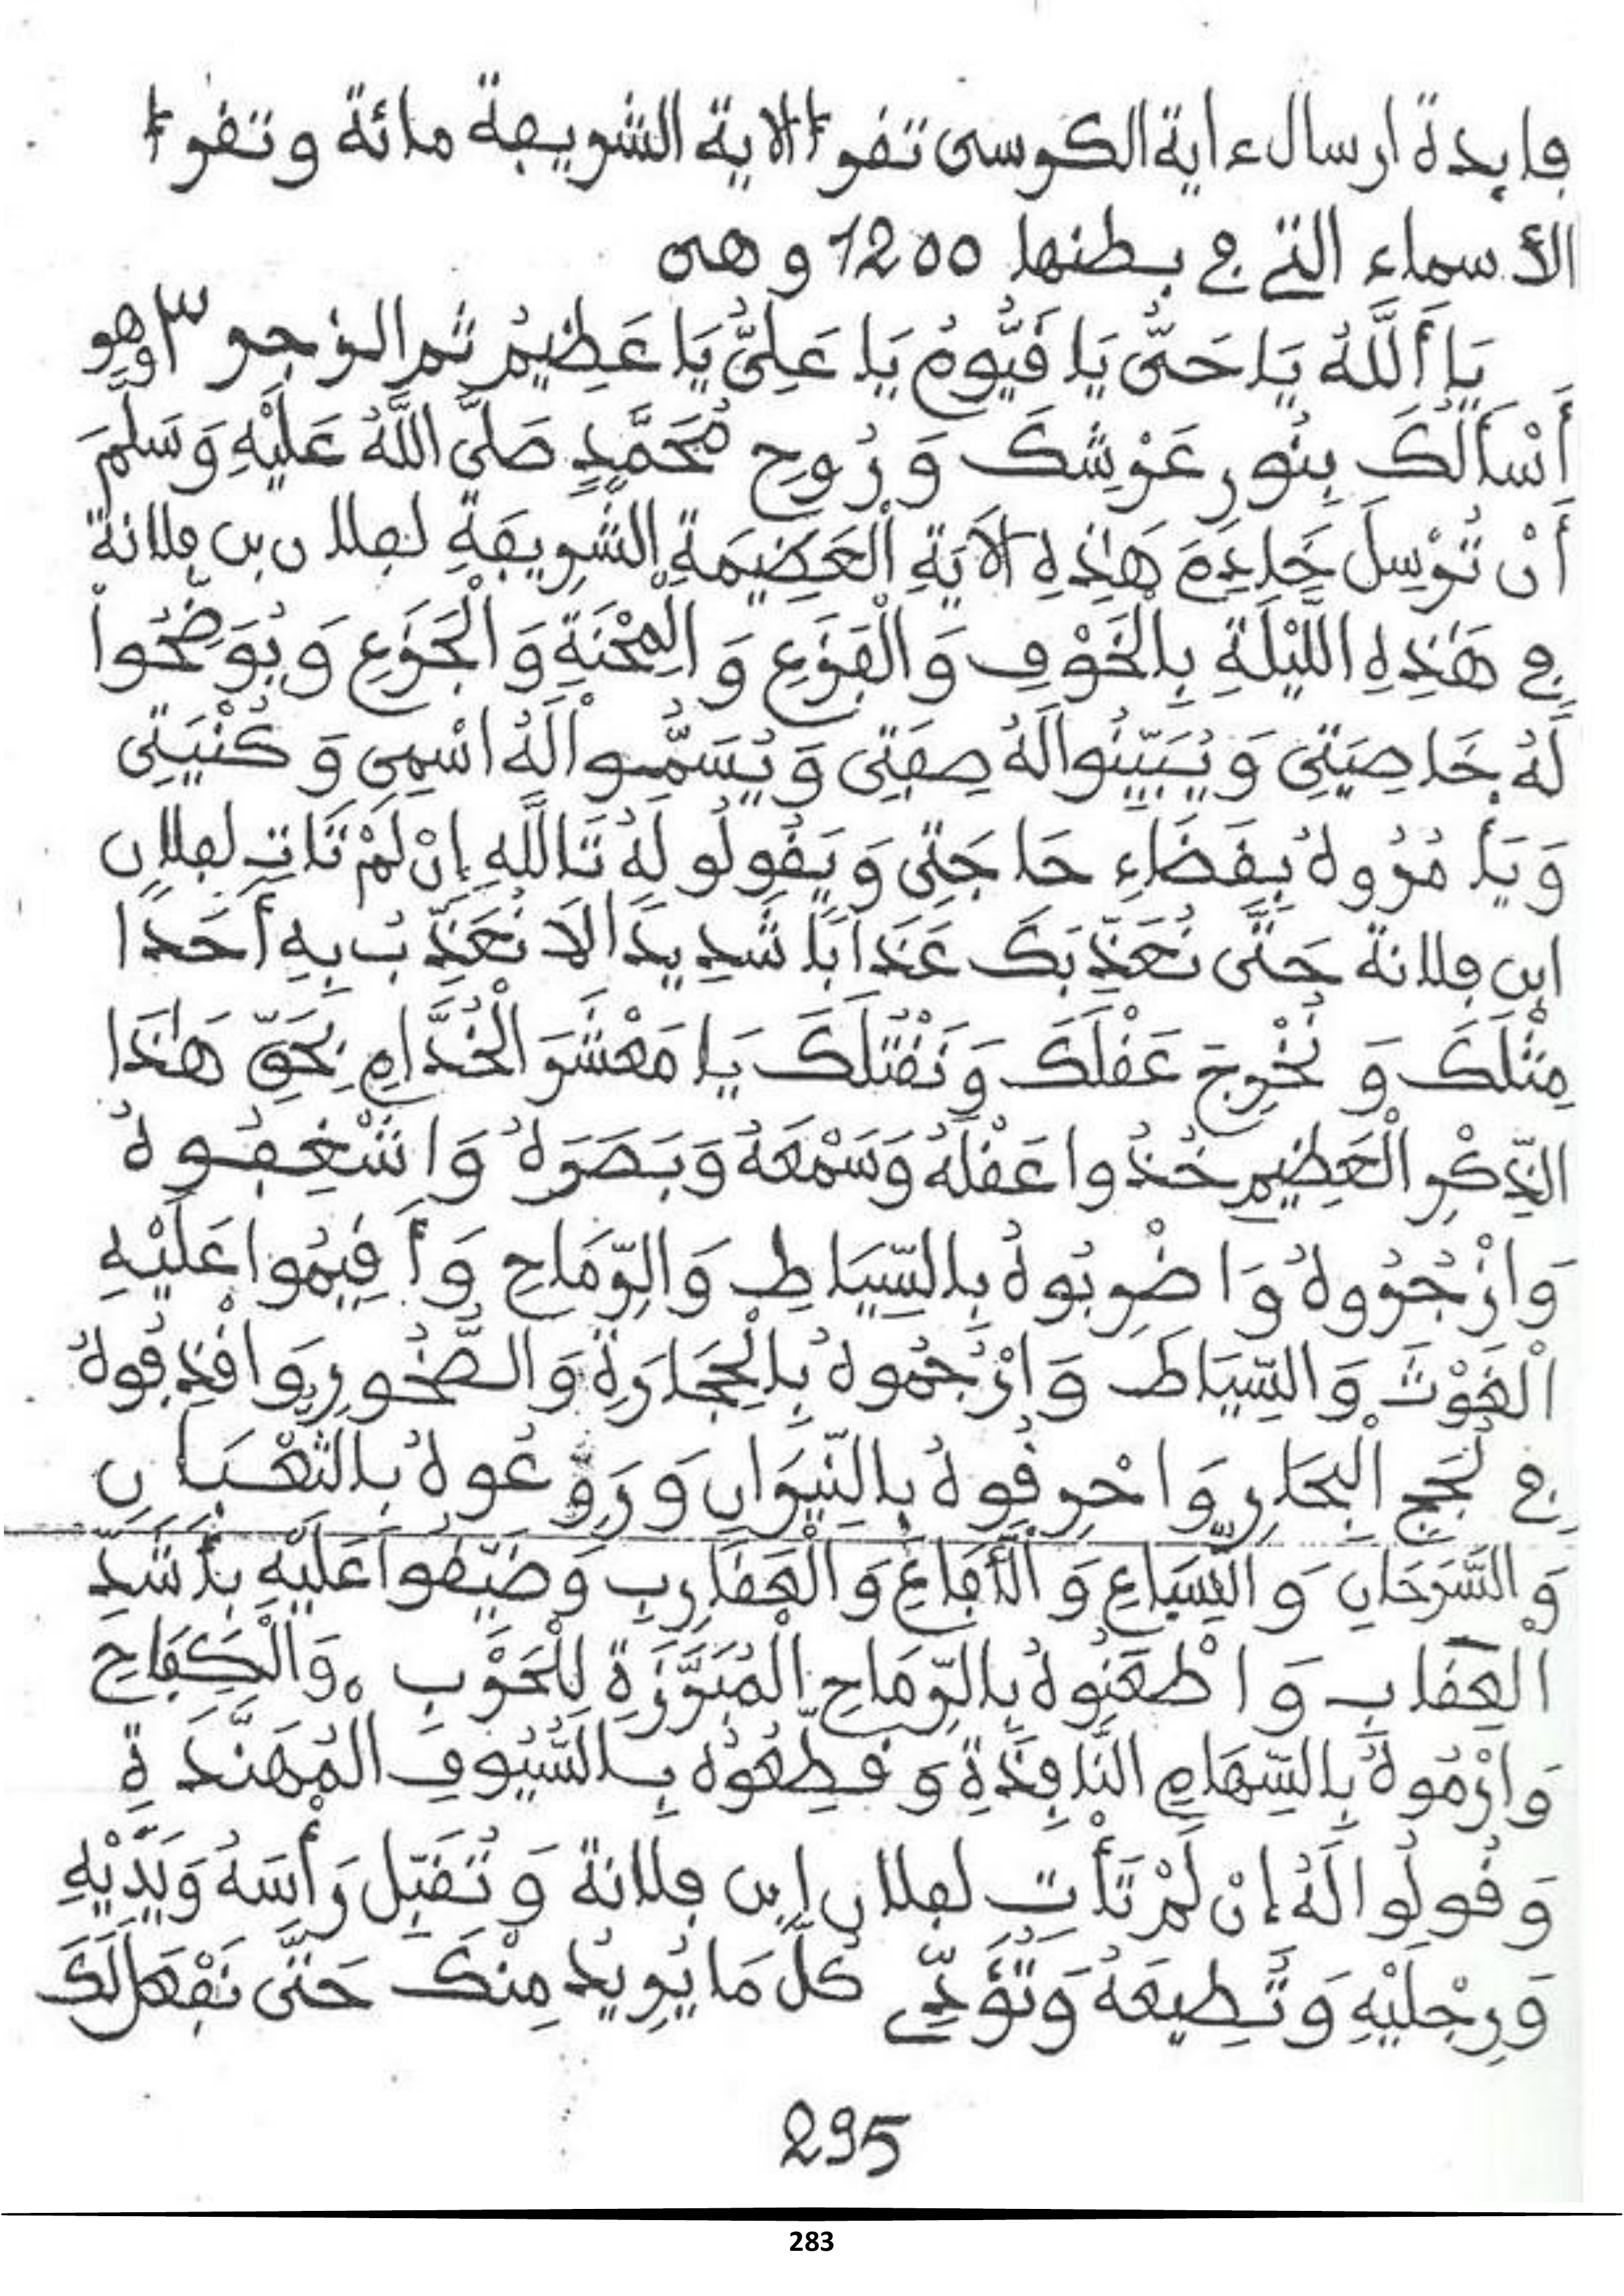 فايدة ارسال ءاية الكرسى تقرأ الاية الشريفة مائة وتقرأ
الأسماء التي في بطنها 1200 وهى
يَا أَللَّهُ يَا حَىُّ يَا قَيُّومُ يَا عَلِىُّ يَا عَظِيمُ ثم الزجر ٣ وهو
أَسْأَلُكَ بِنُورِ عَرْشِكَ وَرُوحِ مُحَمَّدٍ صَلَّى اللَّهُ عَلَيْهِ وَسَلَّمَ
أَنْ تُرْسِلَ خَادِمَ هَٰذِهِ الاَيَةِ الْعَضِيمَةِ الشَّرِيفَةِ لفلان بن فلانة
فِي هَٰذِهِ اللَّيْلَةِ بِالْخَوْفِ وَالْفَزَعِ وَالْمِحْنَةِ وَالْجَزَعِ وَيُوَضِّحُواْ
لَهُ خَاصِيَتِى وَيُبَيِّنُوا لَهُ صِفَتِى وَيُسَمُّواْ لَهُ اسْمِى وَكُنْيَتِى
وَيَأْمُرُوهُ بِقَضَاءِ حَاجَتِى وَيَقُولُو لَهُ تَاللَّهِ إِنْ لَمْ تَاتِ لفلان
ابن فلانة حَتَّى نُعَذِّبَكَ عَذَابًا شَدِيدًا لَا نُعَذِّبُ بِهِ أَحَدًا
مِثْلَكَ وَنُخْرِجَ عَقْلَكَ وَنَقْتُلَكَ يَا مَعْشَرَ الْخُدَّامِ بِحَقِّ هَٰذَا
الذِّكْرِ الْعَظِيمِ خُذُوا عَقْلَهُ وَسَمْعَهُ وَبَصَرَهُ وَاشْغِفُوهُ
وَازْجُرُوهُ وَاضْرِبُوهُ بِالسِّيَاطِ وَالرِّمَاحِ وَأَقِيمُوا عَلَيْهِ
الْغَوْثَ وَالسِّيَاطَ وَارْجُمُوهُ بِالْحِجَارَةِ وَالصُّخُورِ وَاقْذِفُوهُ
فِي لُجَجِ الْبِحَارِ وَاحْرِقُوهُ بِالنِّيرَانِ وَرَوِّعُوهُ بِالثَّعْبَانِ
وَالسَّرَحَانِ وَالسِّبَاعِ وَالْأَفَاعِي وَالْعَقَارِبِ وَضَيِّقُوا عَلَيْهِ بِأَشَدِّ
الْعِقَابِ وَاطْعَنُوهُ بِالرِّمَاحِ الْمُبَرَّزَةِ لِلْحَرْبِ وَالْكِفَاحِ
وَارْمُوهُ بِالسِّهَامِ النَّافِذَةِ وَقَطِّعُوهُ بِالسُّيُوفِ الْمُهَنَّدَةِ
وَقُولُوا لَهُ إِنْ لَمْ تَأْتِ لفلان ابن فلانة وَتُقَبِّل رَأْسَهُ وَيَدَيْهِ
وَرِجْلَيْهِ وَتُطِيعَهُ وَتُؤَدِّي كُلَّ مَا يُرِيدُ مِنْكَ حَتَّى نَفْعَل لَكَ
295
283